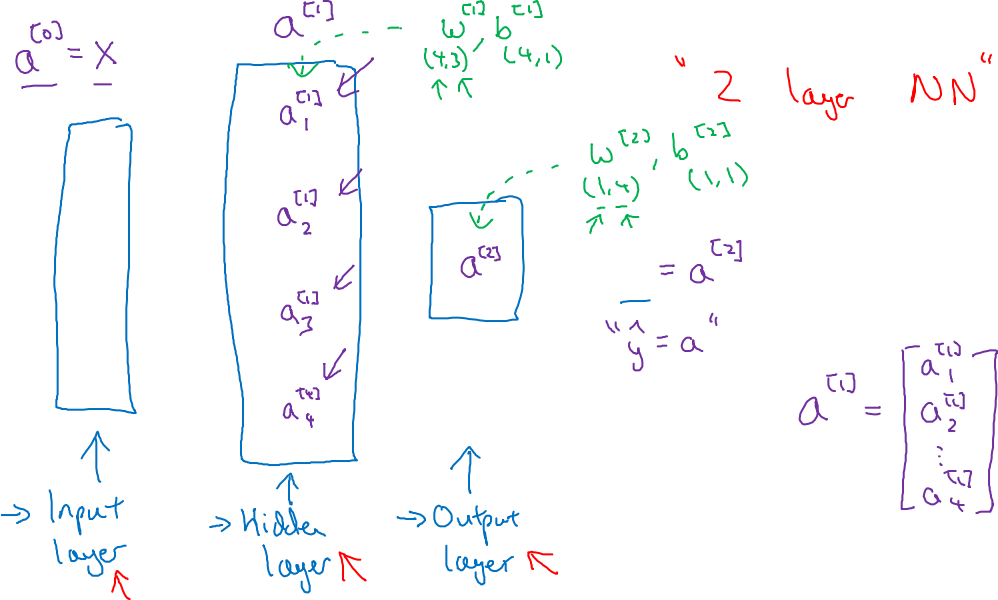 a^[0] = X
a^[1]
w^[1], b^[1]
(4,3) (4,1)
"2 layer NN"
a_1^[1]
a_2^[1]
a_3^[1]
a_4^[4]
w^[2], b^[2]
(1,4) (1,1)
a^[2]
= a^[2]
"ŷ = a"
a^[1] = [a_1^[1]
a_2^[1]
⋮
a_4^[1]]
→ Input
layer
→ Hidden
layer
→ Output
layer